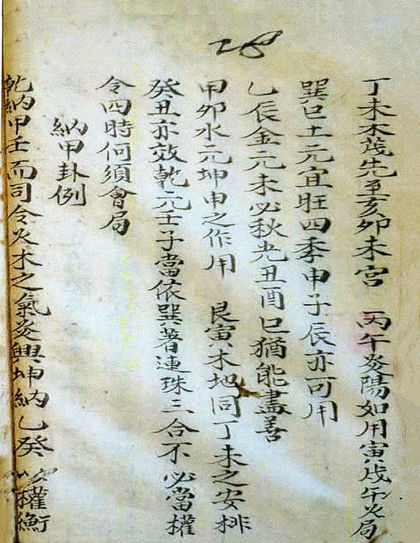 丁未木茂先尋亥卯未宮　丙午炎陽如用寅戌午火局
巽巳土元宜旺四季申子辰亦可用
乙辰金元未必秋光丑酉巳猶能盡善
甲卯水元坤申之作用　艮寅木地同丁未之安排
癸丑亦效乾元壬子當依巽著連珠三合不必當權
令四時何須會局
納甲卦例
乾納甲壬而司令火木之氣炎興坤納乙癸　權衡